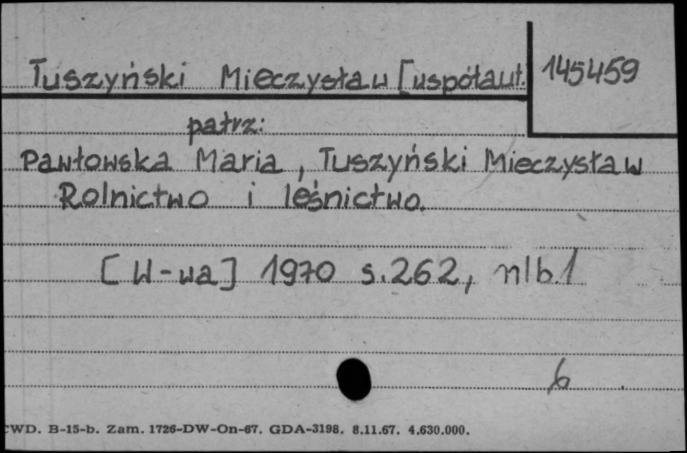 Tuszyński Mieczysław [współaut. 145459
patrz:
Pawłowska Maria, Tuszyński Mieczysław
Rolnictwo i leśnictwo.
[W-wa] 1970 s.262, nlb.1
6
CWD. B-15-b. Zam. 1726-DW-On-67. GDA-3198. 8.11.67. 4.630.000.